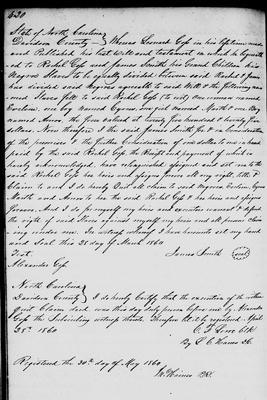 520
State of North Carolina
Davidson County Whereas Leonard Goss in his lifetime made
and Published his last will and testament in which he bequeath
ed to Rachel Goss and James Smith his Grand Children his
Negroes Slaves to be equally divided between said Rachel & James
has divided said Negroes agreeable to said Will & the following nam
ed Slaves fell to said Rachel Goss to wit: one woman named
Caroline one boy named Cyrus one girl named Martha one boy
named the five valued at twenty five hundred & twenty five
dollars Now therefore I the said James Smith for & in Consideration
of the premises & the further Consideration of one dollar to me in hand
paid by the said Rachel Goss the Receipt and payment of which is
hereby acknowledged, have relinquished assigned and set over to the
said Rachel Goss her heirs and assigns forever all my right, title &
Claim to and I do hereby Quit all claim to said Negroes Caroline, Cyrus
Martha and to her the said Rachel Goss & her heirs and assigns
forever. And I do for myself my heirs and executors warrant & defend
the right of said Slaves against myself my heirs and all persons claim
ing under me. In witness whereof I have hereunto set my hand
and Seal this 28 day of March 1860
Test. James Smith (seal)
Alexander Goss.
North Carolina
Davidson County I do hereby Certify that the execution of the within
Quit Claim deed was this day duly proven before me by Alexander
Goss the Subscribing witness thereto Therefore let it be registered April
28th 1860 C. F. Lowe Clk
By L. C. Hanes DC
Registered the 30th day of May 1860
W. Haines P.R.